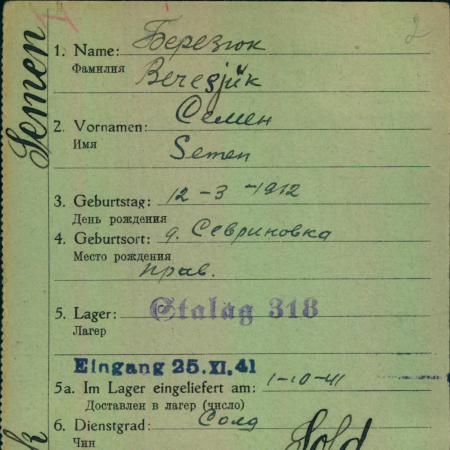 2
Semen
1. Name: Березюк
Фамилия
Beresjük
2. Vornamen: Семен
Имя
Semen
3. Geburtstag: 12-3-1912
День рождения
4. Geburtsort: д. Севриновка
Место рождения
прав.
5. Lager: Stalag 318
Лагерь
Eingang 25. XI. 41
5a. Im Lager eingeliefert am: 1-10-41
Доставлен в лагерь (число)
6. Dienstgrad: Солд
Чин
Sold